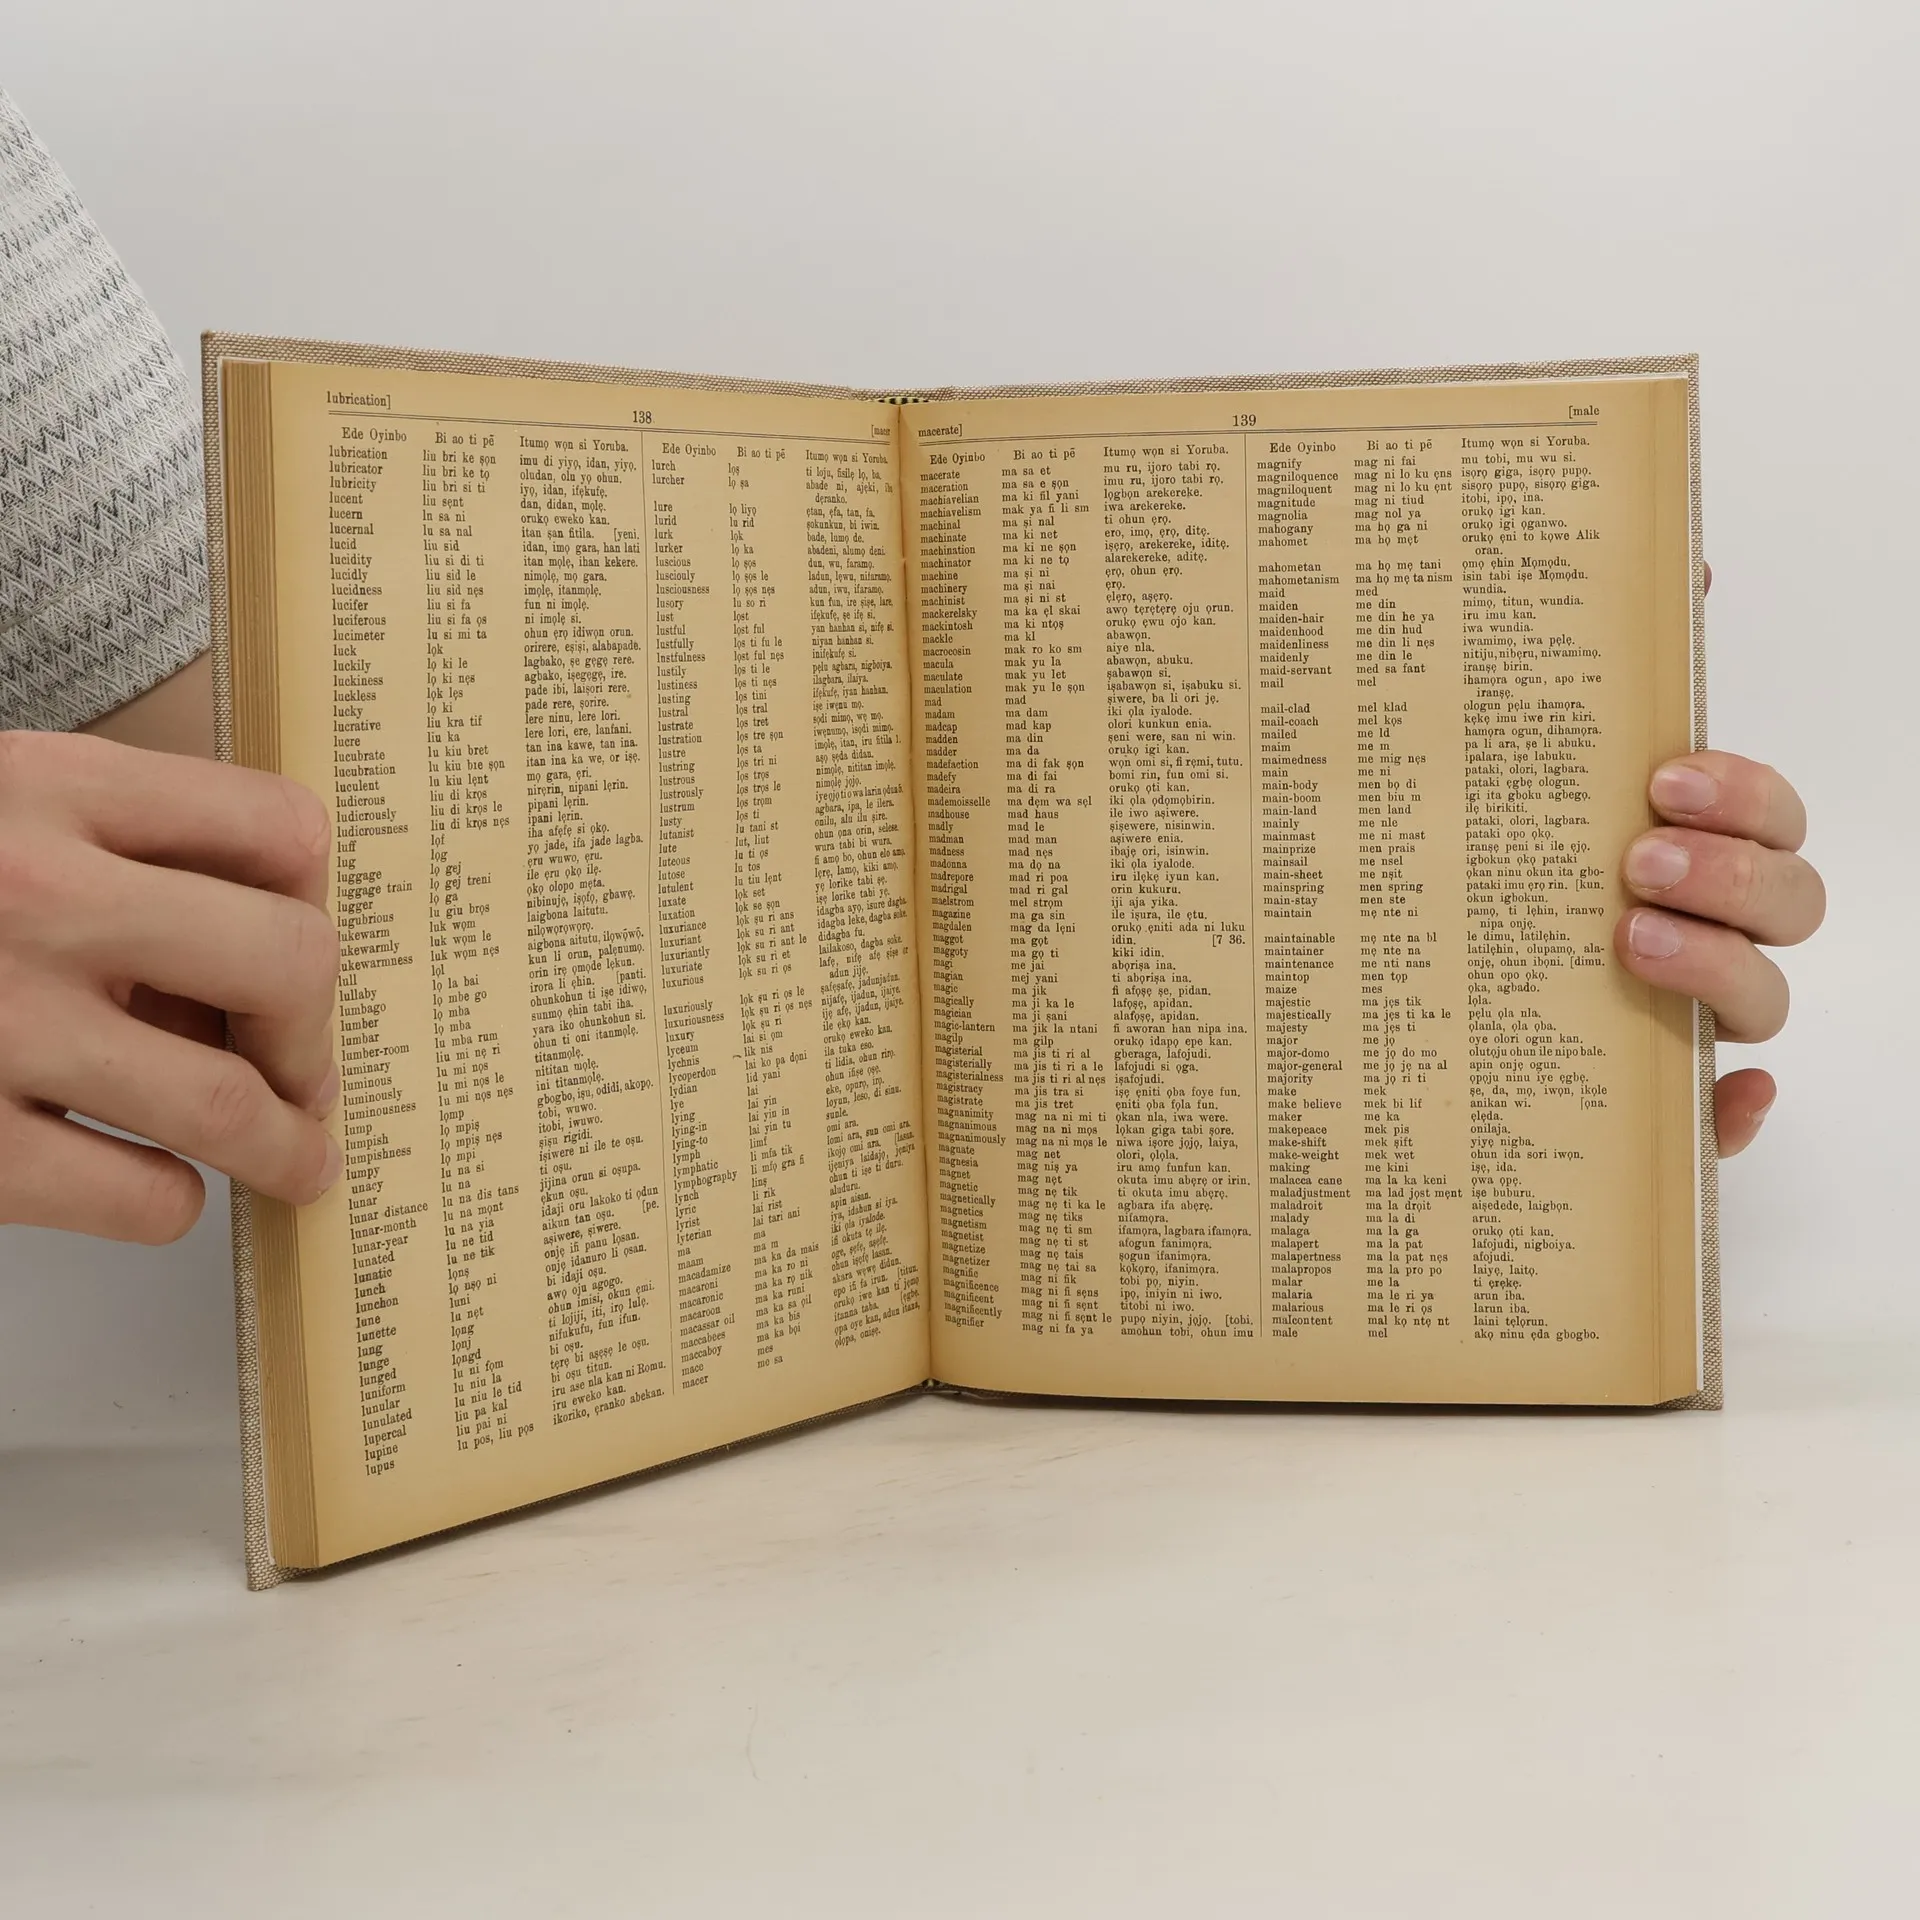 lubrication] 138 [macer
Ede Oyinbo Bi ao ti pē Itumọ wọn si Yoruba.
lubrication liu bri ke ṣọn imu di yiyọ, idan, yiyọ.
lubricator liu bri ke tọ oludan, olu yọ ohun.
lubricity liu bri si ti iyọ, idan, ifẹkufẹ.
lucent liu sẹnt dan, didan, mọlẹ.
lucern ln sa ni orukọ eweko kan.
lucernal lu sa nal itan ṣan fitila. [yeni.
lucid liu sid idan, imọ gara, han lati
lucidity liu si di ti itan mọlẹ, ihan kekere.
lucidly liu sid le nimọlẹ, mọ gara.
lucidness liu sid nẹs imọlẹ, itanmọlẹ.
lucifer liu si fa fun ni imọlẹ.
luciferous liu si fa ọs ni imọlẹ si.
lucimeter lu si mi ta ohun ẹrọ idiwọn orun.
luck lọk orirere, eṣiṣi, alabapade.
luckily lọ ki le lagbako, ṣe gẹgẹ rere.
luckiness lọ ki nẹs agbako, iṣegẹgẹ, ire.
luckless lọk lẹs pade ibi, laiṣori rere.
lucky lọ ki pade rere, ṣorire.
lucrative liu kra tif lere ninu, lere lori.
lucre liu ka lere lori, ere, lanfani.
lucubrate lu kiu bret tan ina kawe, tan ina.
lucubration lu kiu bre ṣọn tan ina ka we, or iṣẹ.
luculent lu kiu lẹnt mọ gara, ẹri.
ludicrous liu di krọs nirẹrin, nipani lẹrin.
ludicrously liu di krọs le pipani lẹrin.
ludicrousness liu di krọs nẹs ipani lẹrin.
luff lọf iha afẹfẹ si ọkọ.
lug lọg yọ jade, ifa jade lagba.
luggage lọ gej ẹru wuwo, ẹru.
luggage train lọ gej treni ile ẹru ọkọ ilẹ.
lugger lọ ga ọkọ olopo mẹta.
lugubrious lu giu brọs nibinujẹ, iṣọfọ, gbawẹ.
lukewarm luk wọm laigbona laitutu.
ukewarmly luk wọm le
ukewarmness luk wọm nẹs
lull lọl kun li orun, palẹnumọ.
lullaby lọ la bai orin irẹ ọmọde lẹkun.
lumbago lọ mbe go irora li ẹhin. [panti.
lumber lọ mba ohunkohun ti iṣe idiwọ,
lumbar lọ mba sunmọ ẹhin tabi iha.
lumber-room lu mba rum yara iko ohunkohun si.
luminary liu mi nẹ ri ohun ti oni itanmọlẹ.
luminous lu mi nọs titanmọlẹ.
luminously lu mi nọs le nititan mọlẹ.
luminousness lu mi nọs nẹs ini titanmọlẹ.
lump lọmp gbogbo, iṣu, odidi, akopọ.
lumpish lọ mpiṣ tobi, wuwo.
lumpishness lọ mpiṣ nẹs itobi, iwuwo.
lumpy lọ mpi ṣiṣu rigidi.
unacy lu na si iṣiwere ni ile te oṣu.
lunar lu na ti oṣu.
lunar distance lu na dis tans jijina orun si oṣupa.
lunar-month lu na mọnt ẹkun oṣu.
lunar-year lu na yia idaji oru lakoko ti ọdun
lunated lu ne tid aikun tan oṣu. [pe.
lunatic lu ne tik aṣiwere, ṣiwere.
lunch lọnṣ onjẹ ifi panu lọsan.
lunchon lọ nṣọ ni onjẹ idanuro li ọsan.
lune luni bi idaji oṣu.
lunette lu nẹt awọ oju agogo.
lung lọng ohun imisi, okun ẹmi.
lunge lọnj ti lojiji, iti, irọ lulẹ.
lunged lọngd nifukufu, fun ifun.
luniform lu ni fọm bi oṣu.
lunular lu niu la tẹrẹ bi aṣẹṣẹ le oṣu.
lunulated lu niu le tid bi oṣu titun.
lupercal liu pa kal iru ase nla kan ni Romu.
lupine liu pai ni iru eweko kan.
lupus lu pos, liu pọs ikoriko, ẹranko abekan.
Ede Oyinbo Bi ao ti pē Itumọ wọn si Yoruba.
lurch lọṣ ti loju, fisilẹ lọ, ba.
lurcher lọ ṣa abade ni, ajẹki,
dẹranko.
lure lọ liyọ ẹtan, ẹfa, tan, fa.
lurid lu rid ṣokunkun, bi iwin.
lurk lọk bade, lumọ de.
lurker lọ ka abadeni, alumọ deni.
luscious lọ ṣọs dun, wu, faramọ.
lusciouly lọ ṣọs le ladun, lẹwu, nifaramọ.
lusciousness lọ ṣọs nẹs adun, iwu, ifaramọ.
lusory lu so ri kun fun, ire ṣiṣe, lare.
lust lọst ifẹkufẹ, ṣe ifẹ si.
lustful lọst ful yan hanhan si, nifẹ si.
lustfully lọs ti fu le niyan hanhan si.
lnstfulness lọst ful nẹs inifẹkufẹ si.
lustily lọs ti le pẹlu agbara, nigboiya.
lustiness lọs ti nẹs ilagbara, ilaiya.
lusting lọs tini ifẹkufẹ, iyan hanhan.
lustral lọs tral iṣe iwẹnu mọ.
lustrate lọs tret sọdi mimọ, wẹ mọ.
lustration lọs tre ṣọn iwẹnumọ, isọdi mimọ.
lustre lọs ta imọlẹ, itan, iru fitila 1.
lustring lọs tri ni aṣọ ṣẹda didan.
lustrous lọs trọs nimọlẹ, nititan imọlẹ.
lustrously lọs trọs le nimọlẹ jojo.
lustrum lọs trọm
lusty lọs ti agbara, ipa, le ilera.
lutanist lu tani st onilu, alu ilu ṣire.
lute lut, liut ohun ọna orin, selese.
luteous lu ti ọs wura tabi bi wura.
lutose lu tos fi amọ bo, ohun elo amọ.
lutulent lu tiu lẹnt lẹrẹ, lamọ, kiki amọ.
luxate lọk set yẹ lorike tabi ṣẹ.
luxation lọk se ṣọn ifa lorike tabi yẹ.
luxuriance lọk ṣu ri ans idagba ayọ, isure dagba.
luxuriant lọk ṣu ri ant idagba leke, dagba soke.
luxuriantly lọk ṣu ri ant le didagba fu.
luxuriate lọk ṣu ri et lailakoso, dagba soke.
luxurious lọk ṣu ri ọs
adun jijẹ.
luxuriously lọk ṣu ri ọs le
luxuriousness lọk ṣu ri ọs nẹs nijafẹ, ijadun, ijaiye.
luxury lọk ṣu ri ijẹ afẹ, ijadun, ijaiye.
lyceum lai si ọm ile ẹkọ kan.
lychnis lik nis orukọ eweko kan.
lycoperdon lai ko pa dọni ila tuka eso.
lydian lid yani ti lidia, ohun rirọ.
lye lai ohun ifiṣe ọṣẹ.
lying lai yin eke, opurọ, irọ.
lying-in lai yin in loyun, leso, di sinu.
lying-to lai yin tu sunle.
lymph limf omi ara.
lymphatic li mfa tik lomi ara, sun omi ara.
lymphography li mfọ gra fi ikojọ omi ara. [lasan.
lynch linṣ ijeniya laidajọ, jẹniya
lyric li rik ohun ti iṣe ti duru.
lyrist lai rist aluduru.
lyterian lai tari ani apin aisan.
ma ma iya, idahun si iya.
maam ma m iki ọla iyalode.
macadamize ma ka da mais ifi okuta tẹ ilẹ.
macaroni ma ka ro ni oge, ṣẹfẹ, aṣẹfẹ.
macaronic ma ka rọ nik ohun iṣẹfẹ lasan.
macaroon ma ka runi akara wẹwẹ didun.
macassar oil ma ka sa ọil epo ifi fa irun. [titun.
maccabees ma ka bis orukọ iwe kan ti jẹmọ
maccaboy ma ka bọi itanna taba. [ẹgbẹ.
mace mes ọpa oye kan, adun itana,
macer me sa ọlọpa, oniṣẹ.
macerate] 139 [male
Ede Oyinbo Bi ao ti pē Itumọ wọn si Yoruba.
macerate ma sa et mu ru, ijoro tabi rọ.
maceration ma sa e ṣọn imu ru, ijoro tabi rọ.
machiavelian ma ki fil yani lọgbọn arekereke.
machiavelism mak ya fi li sm iwa arekereke.
machinal ma ṣi nal ti ohun ẹrọ.
machinate ma ki net ero, imọ, ẹrọ, ditẹ.
machination ma ki ne ṣọn iṣẹrọ, arekereke, iditẹ.
machinator ma ki ne tọ alarekereke, aditẹ.
machine ma ṣi ni ẹrọ, ohun ẹrọ.
machinery ma ṣi nai ẹrọ.
machinist ma ṣi ni st ẹlẹrọ, aṣẹrọ.
mackerelsky ma ka ẹl skai awọ tẹrẹtẹrẹ oju ọrun.
mackintosh ma ki ntọṣ orukọ ẹwu ojo kan.
mackle ma kl abawọn.
macrocosin mak ro ko sm aiye nla.
macula mak yu la abawọn, abuku.
maculate mak yu let ṣabawọn si.
maculation mak yu le ṣọn iṣabawọn si, iṣabuku si.
mad mad ṣiwere, ba li ori jẹ.
madam ma dam iki ọla iyalode.
madcap mad kap olori kunkun enia.
madden ma din ṣeni were, san ni win.
madder ma da orukọ igi kan.
madefaction ma di fak ṣọn wọn omi si, fi rẹmi, tutu.
madefy ma di fai bomi rin, fun omi si.
madeira ma di ra orukọ ọti kan.
mademoisselle ma dẹm wa sẹl iki ọla ọdọmọbirin.
madhouse mad haus ile iwo aṣiwere.
madly mad le ṣiṣewere, nisinwin.
madman mad man aṣiwere enia.
madness mad nẹs ibajẹ ori, isinwin.
madonna ma dọ na iki ọla iyalode.
madrepore mad ri poa iru ilẹkẹ iyun kan.
madrigal mad ri gal orin kukuru.
maelstrom mel strọm iji aja yika.
magazine ma ga sin ile iṣura, ile ẹtu.
magdalen mag da lẹni orukọ ẹniti ada ni luku
maggot ma gọt idin. [7 36.
maggoty ma gọ ti kiki idin.
magi me jai abọriṣa ina.
magian mej yani ti abọriṣa ina.
magic ma jik fi afọṣẹ ṣe, pidan.
magically ma ji ka le lafọṣẹ, apidan.
magician ma ji ṣani alafọṣẹ, apidan.
magic-lantern ma jik la ntani fi aworan han nipa ina.
magilp ma gilp orukọ idapọ epe kan.
magisterial ma jis ti ri al gberaga, lafojudi.
magisterially ma jis ti ri a le lafojudi si ọga.
magisterialness ma jis ti ri al nẹs iṣafojudi.
magistracy ma jis tra si iṣẹ ẹniti ọba foye fun.
magistrate ma jis tret ẹniti ọba fọla fun.
magnanimity mag na ni mi ti ọkan nla, iwa were.
magnanimous mag na ni mọs lọkan giga tabi ṣore.
magnanimously mag na ni mọs le niwa iṣore jọjọ, laiya,
magnate mag net olori, ọlọla.
magnesia mag niṣ ya iru amọ funfun kan.
magnet mag nẹt okuta imu abẹrẹ or irin.
magnetic mag nẹ tik ti okuta imu abẹrẹ.
magnetically mag nẹ ti ka le agbara ifa abẹrẹ.
magnetics mag nẹ tiks nifamọra.
magnetism mag nẹ ti sm ifamọra, lagbara ifamọra.
magnetist mag nẹ ti st afogun fanimọra.
magnetize mag nẹ tais ṣogun ifanimọra.
magnetizer mag nẹ tai sa kọkọrọ, ifanimọra.
magnific mag ni fik tobi pọ, niyin.
magnificence mag ni fi sẹns ipọ, iniyin ni iwo.
magnificent mag ni fi sẹnt titobi ni iwo.
magnificently mag ni fi sẹnt le pupọ niyin, jọjọ. [tobi.
magnifier mag ni fa ya amohun tobi, ohun imu
Ede Oyinbo Bi ao ti pē Itumọ wọn si Yoruba.
magnify mag ni fai mu tobi, mu wu si.
magniloquence mag ni lo ku ẹns isọrọ giga, isọrọ pupọ.
magniloquent mag ni lo ku ẹnt sisọrọ pupọ, sisọrọ giga.
magnitude mag ni tiud itobi, ipọ, ina.
magnolia mag nol ya orukọ igi kan.
mahogany ma họ ga ni orukọ igi ọganwo.
mahomet ma họ mẹt orukọ ẹni to kọwe Alik
oran.
mahometan ma họ mẹ tani ọmọ ẹhin Mọmọdu.
mahometanism ma họ mẹ ta nism isin tabi iṣe Mọmọdu.
maid med wundia.
maiden me din mimọ, titun, wundia.
maiden-hair me din he ya iru imu kan.
maidenhood me din hud iwa wundia.
maidenliness me din li nẹs iwamimọ, iwa pẹlẹ.
maidenly me din le nitiju, nibẹru, niwamimọ.
maid-servant med sa fant iranṣẹ birin.
mail mel ihamọra ogun, apo iwe
iranṣẹ.
mail-clad mel klad ologun pẹlu ihamọra.
mail-coach mel kọṣ kẹkẹ imu iwe rin kiri.
mailed me ld hamọra ogun, dihamọra.
maim me m pa li ara, ṣe li abuku.
maimedness me mig nẹs ipalara, iṣe labuku.
main me ni pataki, olori, lagbara.
main-body men bọ di pataki ẹgbẹ ologun.
main-boom men biu m igi ita gboku agbegọ.
main-land men land ilẹ birikiti.
mainly me nle pataki, olori, lagbara.
mainmast me ni mast pataki opo ọkọ.
mainprize men prais iranṣẹ peni si ile ẹjọ.
mainsail me nsel igbokun ọkọ pataki
main-sheet me nṣit ọkan ninu okun ita gbo-
mainspring men spring pataki imu ẹrọ rin. [kun.
main-stay men ste okun igbokun.
maintain mẹ nte ni pamọ, ti lẹhin, iranwọ
nipa onjẹ.
maintainable mẹ nte na bl le dimu, latilẹhin.
maintainer mẹ nte na latilẹhin, olupamọ, ala-
maintenance me nti nans onjẹ, ohun ibọni. [dimu.
maintop men tọp ohun opo ọkọ.
maize mes ọka, agbado.
majestic ma jẹs tik lọla.
majestically ma jẹs ti ka le pẹlu ọla nla.
majesty ma jẹs ti ọlanla, ola ọba.
major me jọ oye olori ogun kan.
major-domo me jọ do mo olutọju ohun ile nipo bale.
major-general me jọ jẹ na al apin onjẹ ogun.
majority ma jọ ri ti ọpọju ninu iye ẹgbẹ.
make mek ṣe, da, mọ, iwọn, ikọle
make believe mek bi lif anikan wi. [ọna.
maker me ka ẹlẹda.
makepeace mek pis onilaja.
make-shift mek ṣift yiyẹ nigba.
make-weight mek wet ohun ida sori iwọn.
making me kini iṣẹ, ida.
malacca cane ma la ka keni ọwa ọpẹ.
maladjustment ma lad jọst mẹnt iṣe buburu.
maladroit ma la drọit aiṣedede, laigbọn.
malady ma la di arun.
malaga ma la ga orukọ ọti kan.
malapert ma la pat lafojudi, nigboiya.
malapertness ma la pat nẹs afojudi.
malapropos ma la pro po laiyẹ, laitọ.
malar me la ti ẹrẹkẹ.
malaria ma le ri ya arun iba.
malarious ma le ri ọs larun iba.
malcontent mal kọ ntẹ nt laini tẹlọrun.
male mel akọ ninu ẹda gbogbo.